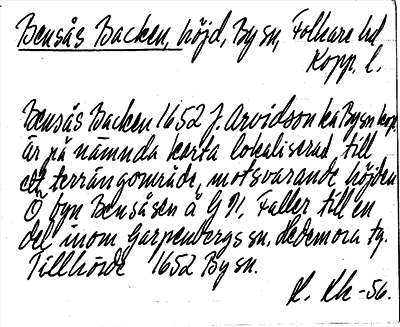 Bensås Backen, höjd, By sn, Folkare hd
Kopp. l.
Bensås Backen 1652 J. Arvidson ka By sn Kop.
är på nämnda karta lokaliserad till
ett terrängområde, motsvarande höjden
Ö byn Bensåsen å G 91. Faller till en
del inom Garpenbergs sn, Hedemora tg.
Tillhörde 1652 By sn.
K. Kh -56.